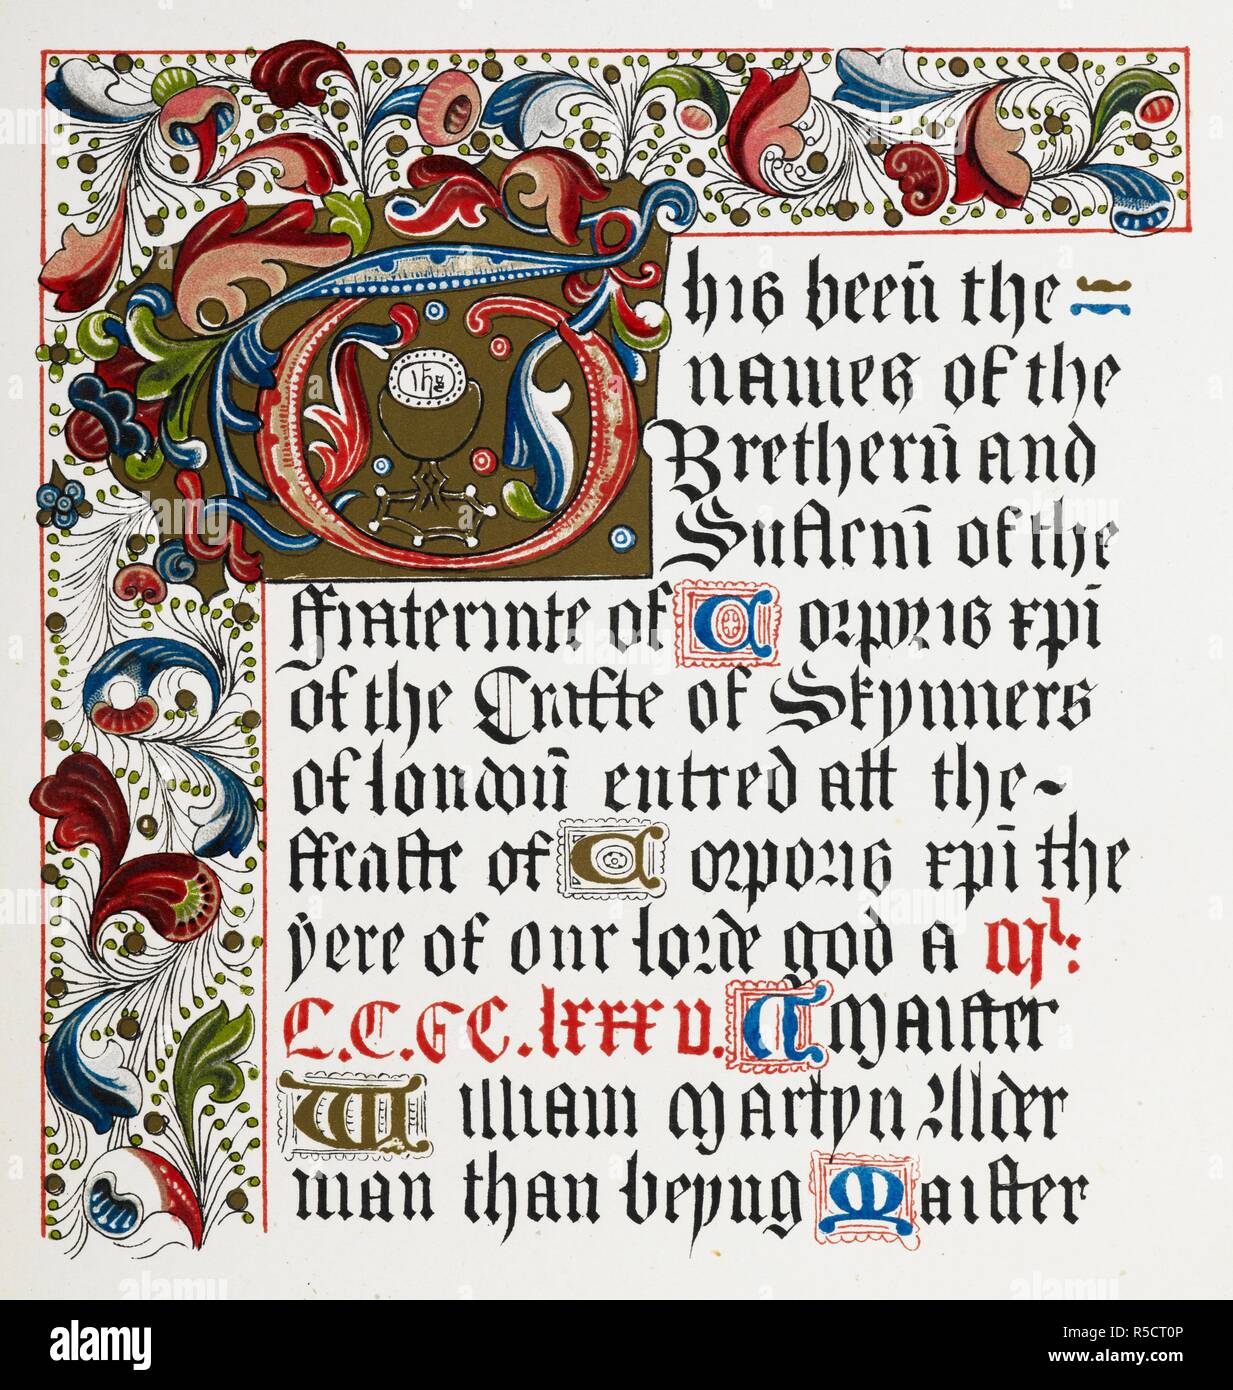 This beeñ the
names of the
Bretherñ and
Susterñ of the
ffraternite of Corporis xpi
of the Crafte of Skynners
of londoñ entred att the~
ffeaste of Corporis xpi the
yere of our lorde god a Ml:
C.C.C.C.lxxxv. A Maister
William Martyn Alder
man than beyng Maister
ihs
alamy
Image ID: R5CT0P
www.alamy.com